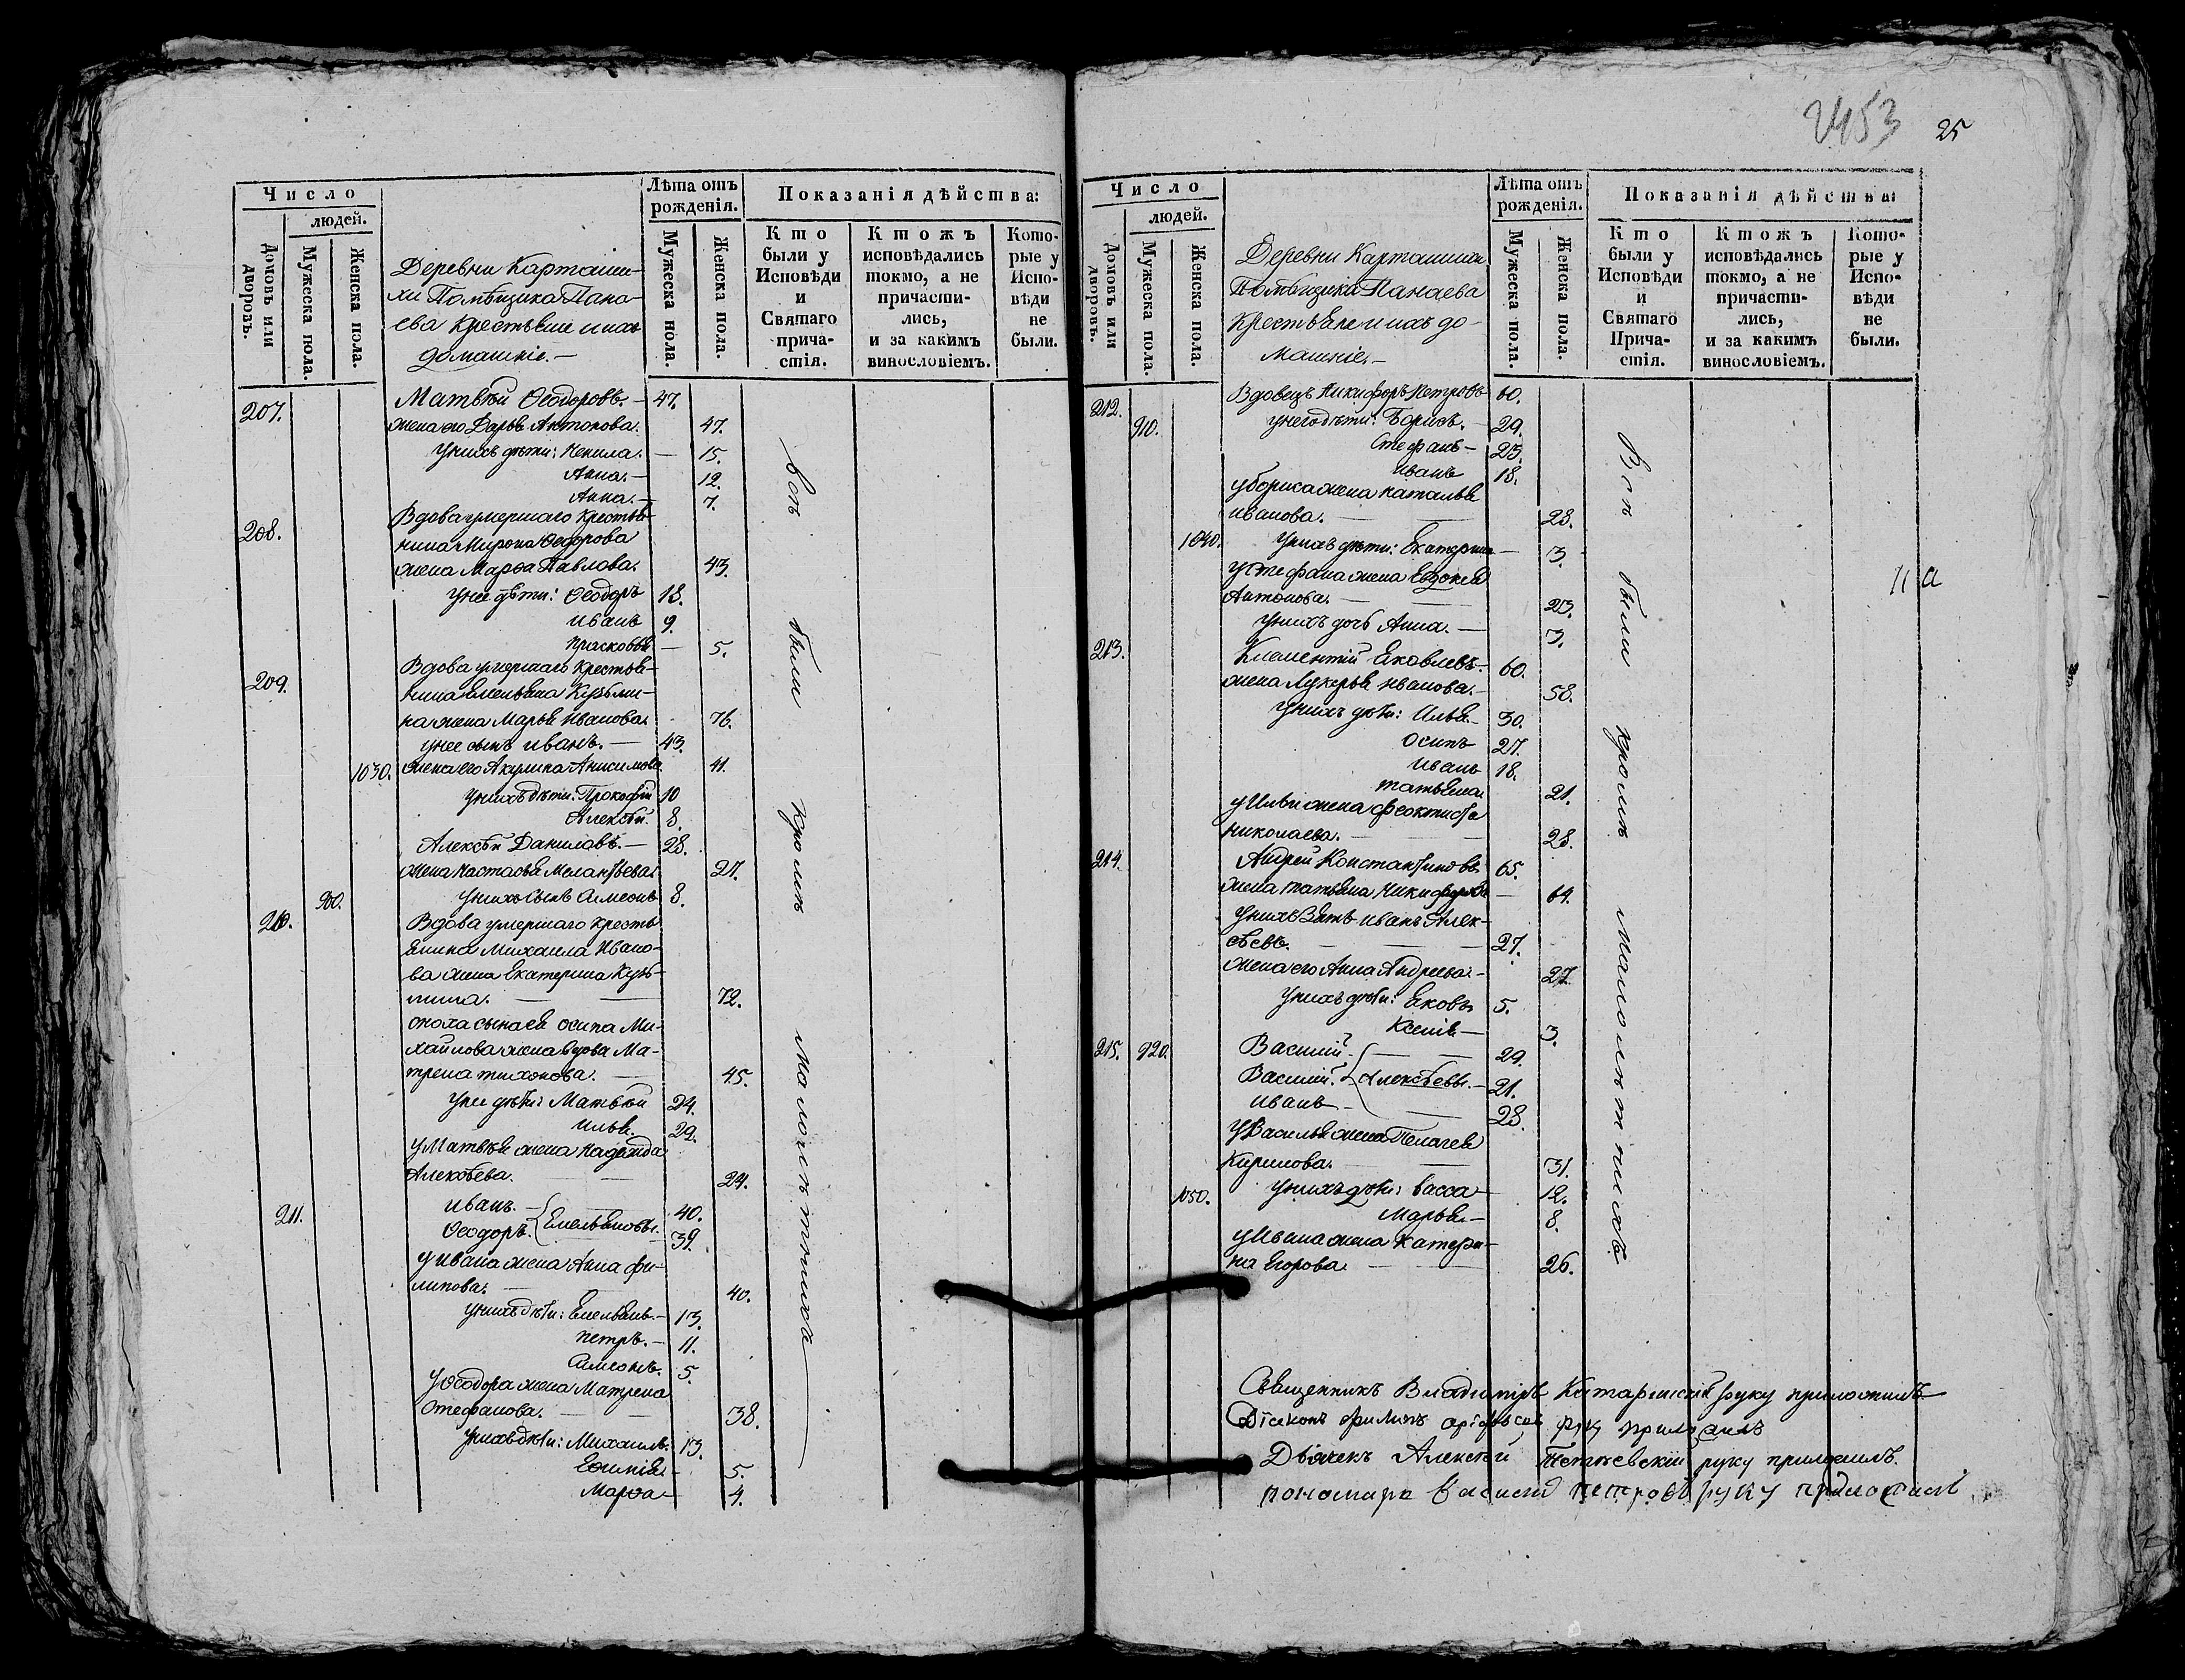 2453 25
Число
людей.
Домовъ или дворовъ.
Мужеска пола.
Женска пола.
Деревни Карташи-
хи Помѣщика Пана-
ева крестьяне и ихъ
домашніе. —
Лѣта отъ
рожденія.
Мужеска пола.
Женска пола.
Показанія дѣйства:
Кто
были у
Исповѣди
и
Святаго
прича-
стія.
Ктожъ
исповѣдались
токмо, а не
причасти-
лись,
и за какимъ
винословіемъ.
Кото-
рые у
Испо-
вѣди
не
были.
207. Матвѣй Ѳеодоровъ. — 47.
жена его Дарья Антонова. 47.
у нихъ дѣти: Ненила. — 15.
Анна. — 12.
Анна. — 7.
Вдова умершаго крестья-
208. нина Мирона Ѳедорова
жена Марѳа Павлова. 43.
у нее дѣти: Ѳеодоръ 18.
Иванъ 9.
Прасковья — 5.
Вдова умершаго крестья-
209. нина Емельяна Кузьми-
на жена Марья Иванова. 76.
у нее сынъ Иванъ. — 43.
1030. жена его Акулина Анисимова 41.
у нихъ дѣти: Прокофій 10
Алексѣй. 8.
Алексѣй Даниловъ. — 28.
жена Настасья Мелантьева. 27.
900. у нихъ сынъ Симеонъ 8.
210. Вдова умершаго кресть-
янина Михаила Ивано-
ва жена Екатерина Кузь-
мина. — — 72.
сноха сына ея Осипа Ми-
хайлова жена вдова Ма-
трена Тихонова. — 45.
у нее дѣти: Матвѣй 24.
Илья. 22.
у Матвѣя жена Надежда
Алексѣева. — — 24.
211. Иванъ. — 40.
Ѳеодоръ. Емельяновы. 39.
у Ивана жена Анна Фи-
липова. — 40.
у нихъ дѣти: Емельянъ. — 13.
Петръ. — 11.
Симеонъ. 5.
у Ѳеодора жена Матрена
Стефанова. — — 38.
у нихъ дѣти: Михаилъ. 13.
Евѳимія — 5.
Марѳа — 4.
Всѣ были кромѣ малолѣтнихъ
Число
людей.
Домовъ или дворовъ.
Мужеска пола.
Женска пола.
Деревни Карташихи
Помѣщика Панаева
Крестьяне и ихъ до-
машніе. —
Лѣта отъ
рожденія.
Мужеска пола.
Женска пола.
Показанія дѣйства:
Кто
были у
Исповѣди
и
Святаго
Прича-
стія.
Ктожъ
исповѣдались
токмо, а не
причасти-
лись,
и за какимъ
винословіемъ.
Кото-
рые у
Испо-
вѣди
не
были.
212. Вдовецъ Никифоръ Петровъ 60.
910. у него дѣти: Борисъ. — 29.
Стефанъ — 23.
Иванъ 18.
у Бориса жена Наталья
Иванова. — — 28.
1040. у нихъ дѣти: Екатерина — 3.
у Стефана жена Евдокея
Антонова. — — 23.
у нихъ дочь Анна. — 3.
213. Клементій Яковлевъ. 60.
жена Лукерья Иванова. — 58.
у нихъ дѣти: Илья — 30.
Осипъ 27.
Иванъ 18.
Татьяна 21.
у Ильи жена Феоктиста
Николаева. — — 28.
214. Андрей Константиновъ 65.
жена Татьяна Никифорова — 64.
у нихъ зять Иванъ Алек-
сѣевъ. — — 27.
жена его Анна Андреева. — 27.
у нихъ дѣти: Яковъ 5.
Ксенія — 3.
215. 920. Василій. — — 29.
Василій. Алексѣевы. — 21.
Иванъ — 28.
у Василья жена Пелагея
Кирилова. — — 31.
1050. у нихъ дѣти: Васса — 12.
Марья — 8.
у Ивана жена Катери-
на Егорова. — — 26.
Всѣ были кромѣ малолѣтнихъ
Священникъ Владиміръ руку приложилъ
Діаконъ Филипъ руку приложилъ
Дьячекъ Алексѣй руку приложилъ.
пономарь Василей Петровъ руку приложилъ